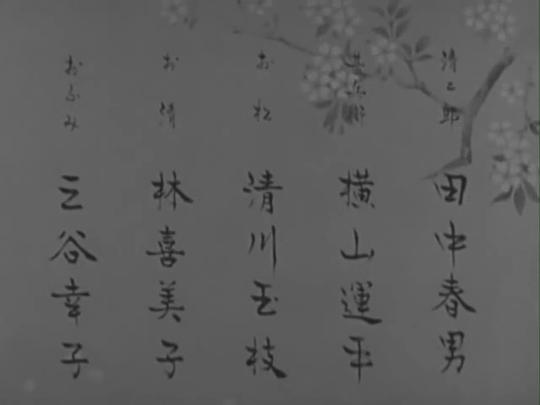 清二郎
田中春男
横山運平
お松
清川玉枝
お清
林喜美子
おふみ
三谷幸子